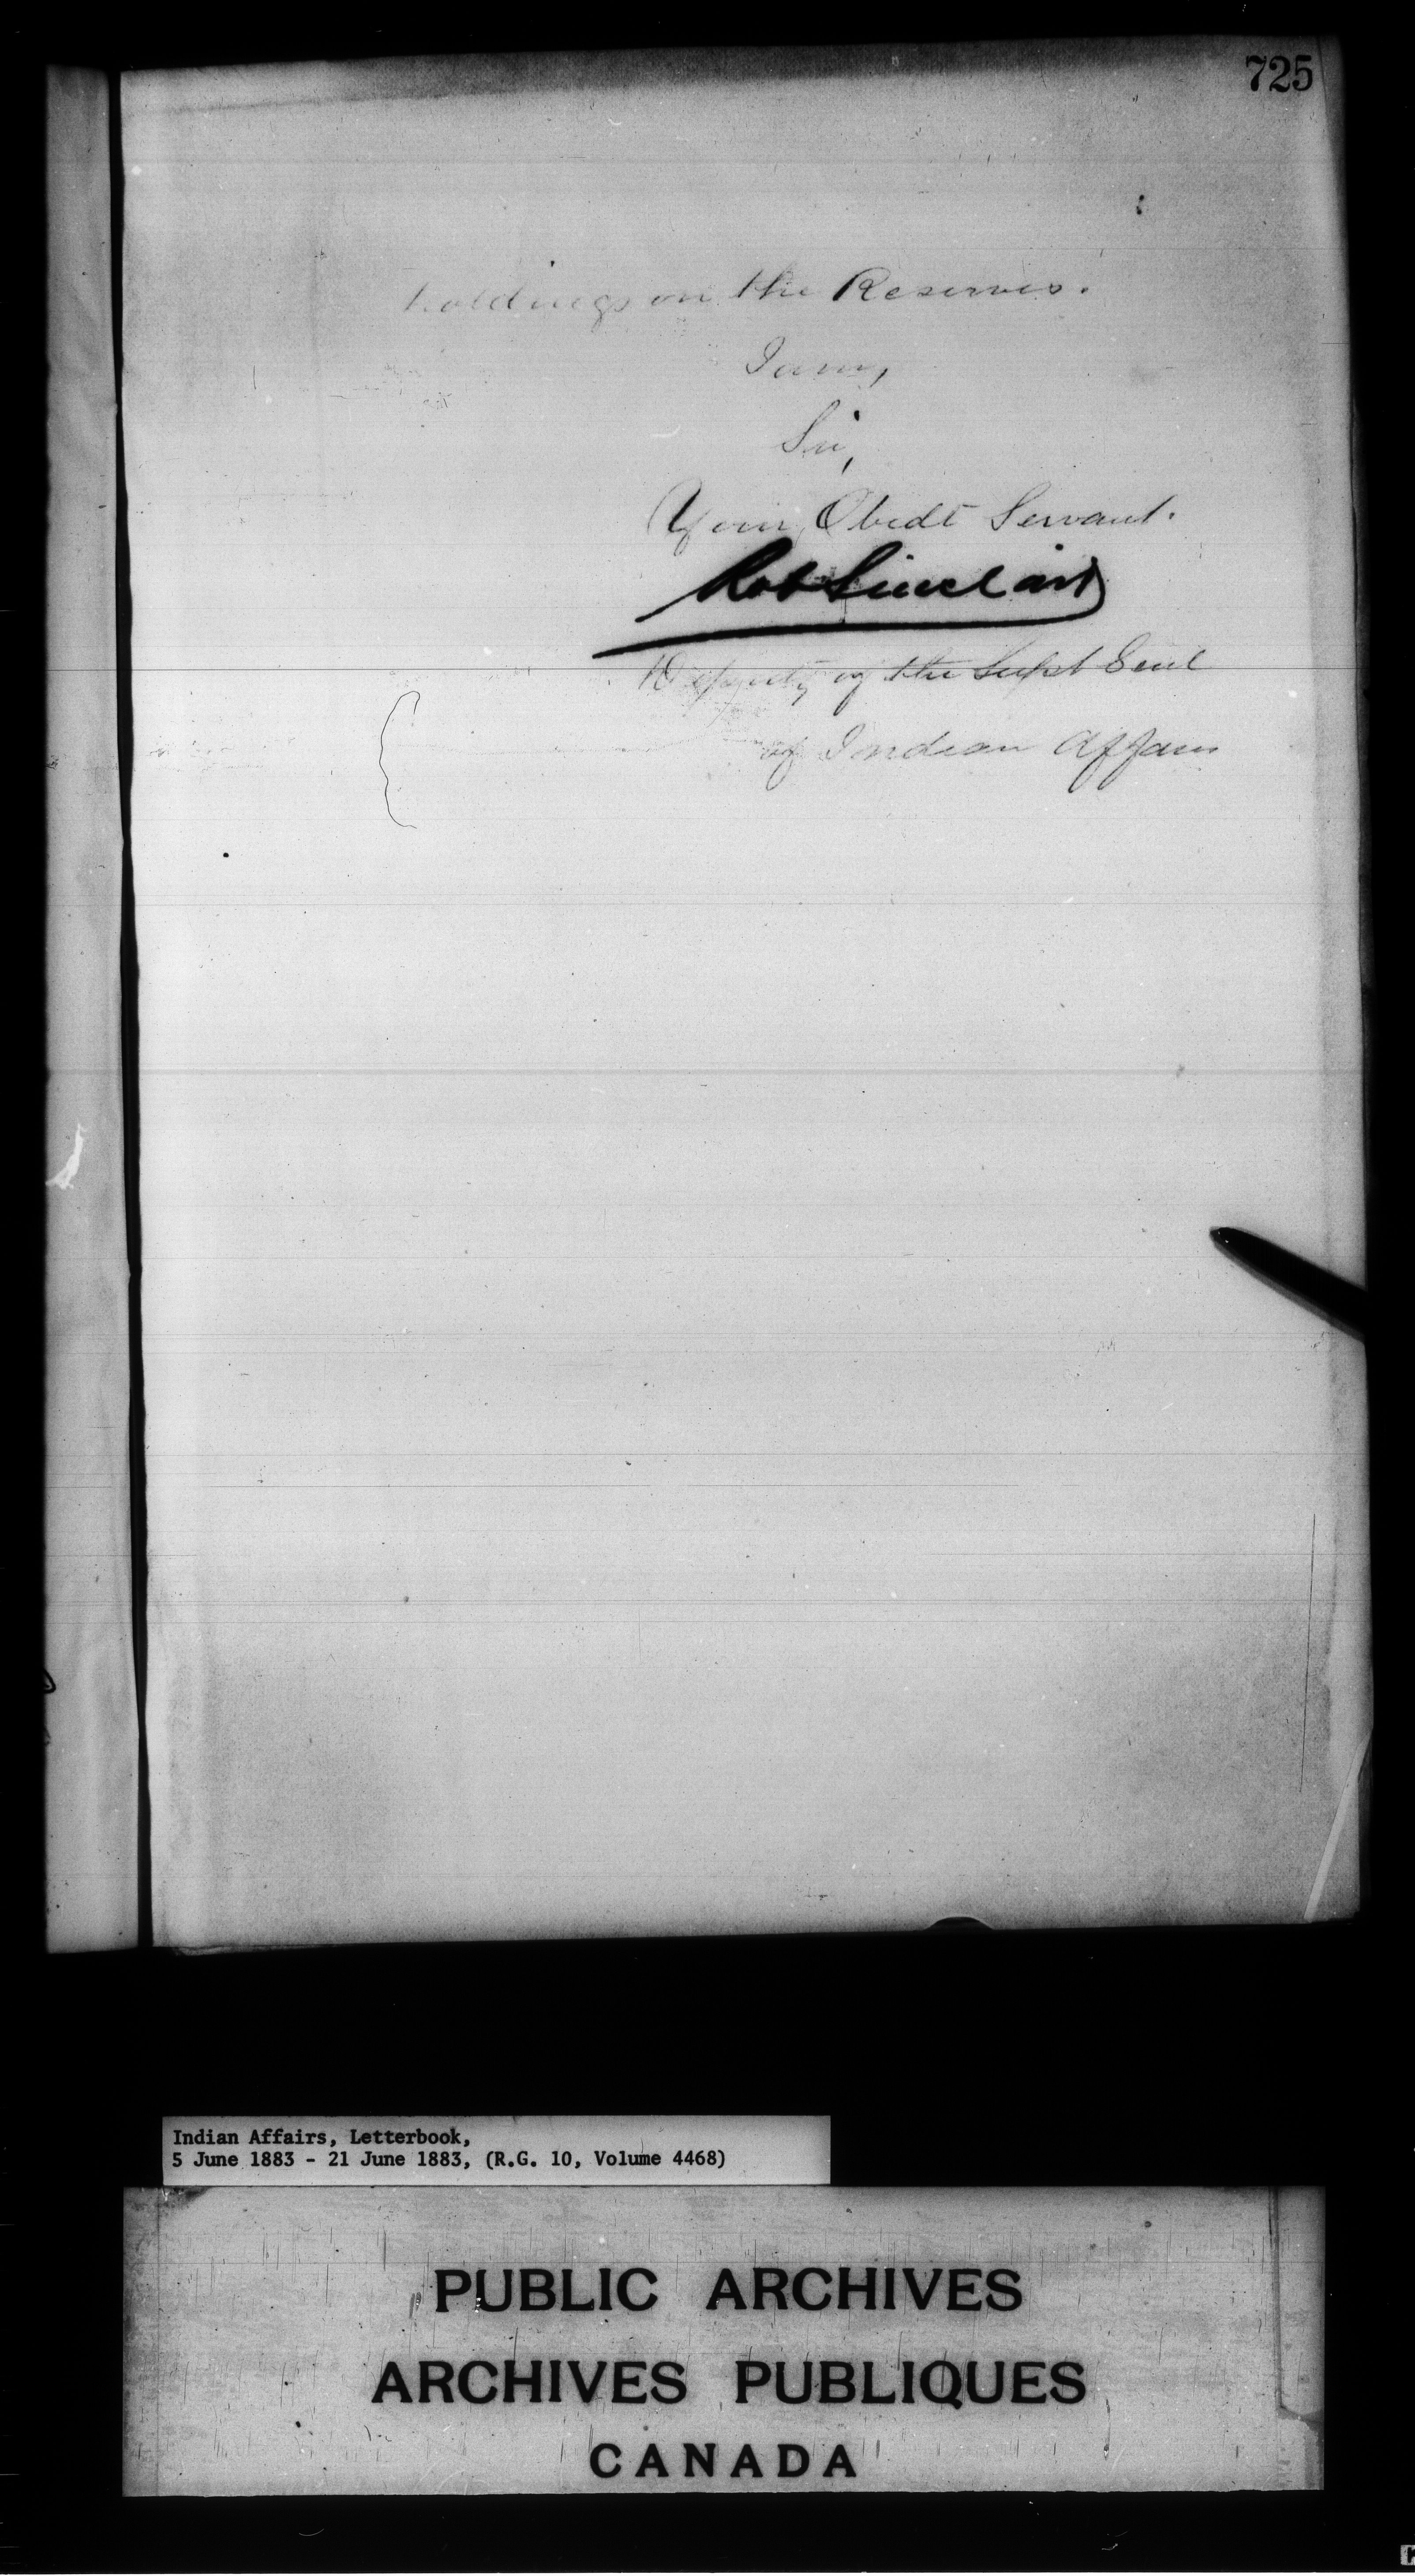 725
holdings on the Reserves.
I am,
Sir,
Your Obedt Servant.
Rob Sinclair
Deputy of the Supt Genl
of Indian Affairs
Indian Affairs, Letterbook,
5 June 1883 - 21 June 1883, (R.G. 10, Volume 4468)
PUBLIC ARCHIVES
ARCHIVES PUBLIQUES
CANADA